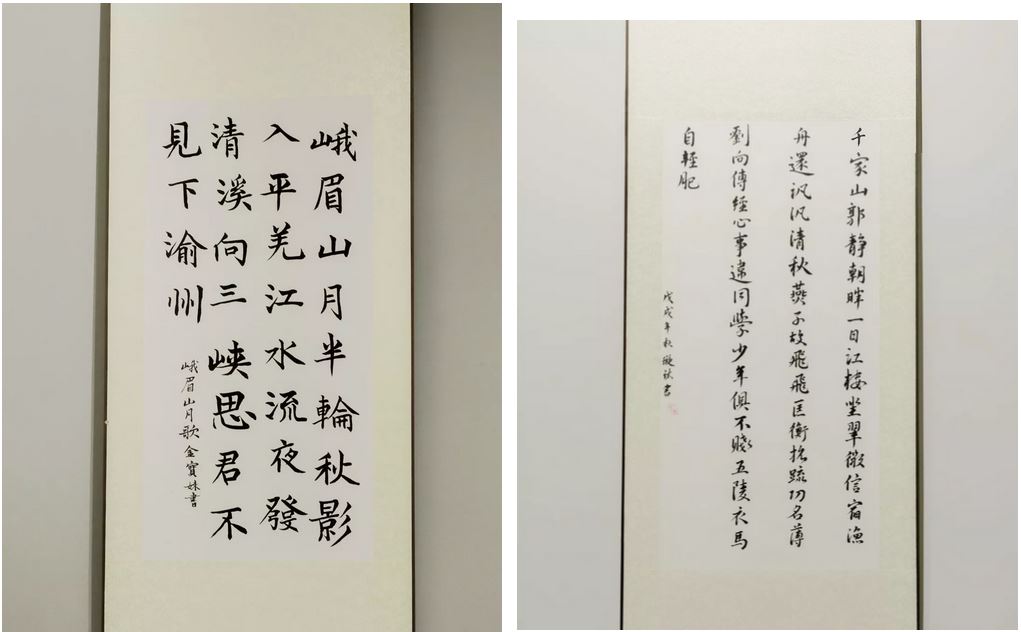 峨眉山月半輪秋影
入平羌江水流夜發
清溪向三峽思君不
見下渝州
峨眉山月歌 金寶妹書
千家山郭靜朝暉一日江樓坐翠微信宿漁
舟還汎汎清秋燕子故飛飛匡衡抗疏功名薄
劉向傳經心事違同學少年俱不賤五陵衣馬
自輕肥
戊戌年秋 書